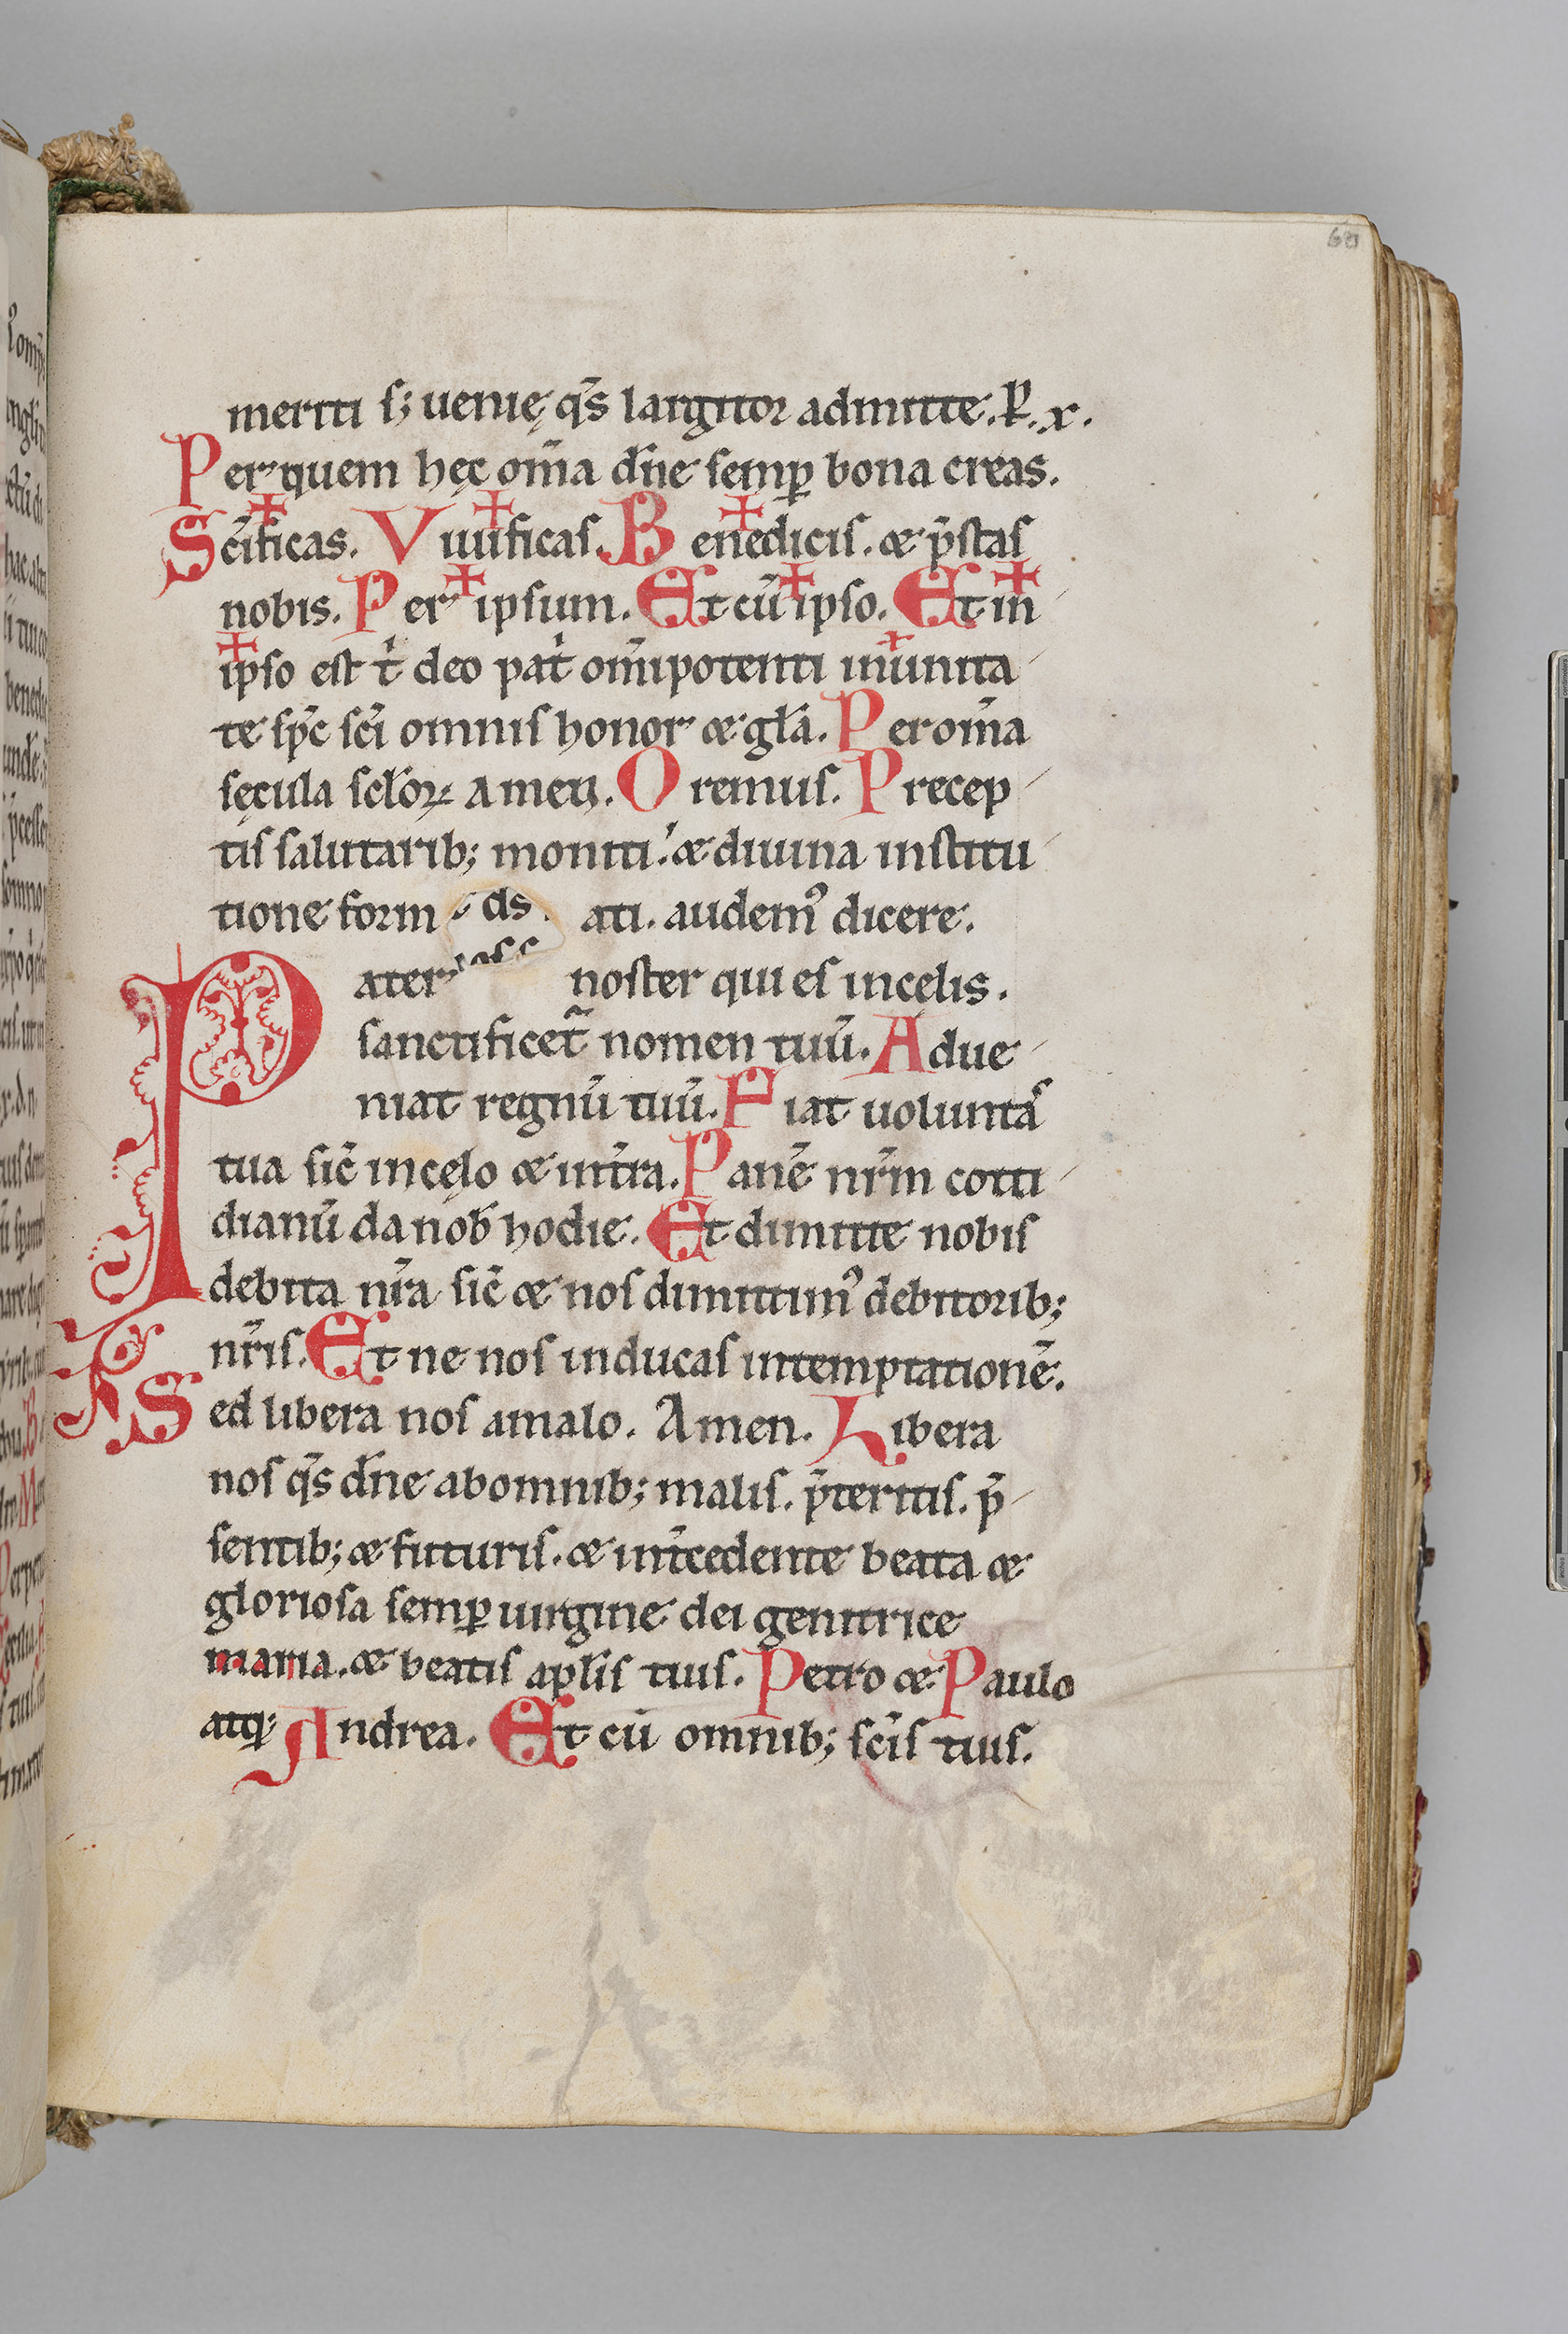 meriti s; uenię q̄s largitor admitte. P̄. x.
Per quem hęc om̄a dn̄e semꝑ bona creas.
Scīficas. Viuificas. Benedicis. & p̄stas
nobis. Per ipsum. Et cū ipso. Et in
ipso est t̄ deo pat̄ om̄ipotenti in unita
te sp̄c sc̄i omnis honor & gl̄a. Per om̄a
sęcula sc̄lorꝝ amen. Oremus. Precep
tis salutarib; moniti. & diuina institu
tione form ds. ati. audemꝰ dicere.
Pater noster qui es in cęlis.
sanctificet̄ nomen tuū. Adue
niat regnū tuū. Fiat uoluntas
tua sic̄ in cęlo & in t̄ra. Panē nr̄m cotti
dianū da nob̄ hodie. Et dimitte nobis
debita nr̄a sic̄ & nos dimittimꝰ debitorib;
nr̄is. Et ne nos inducas in temptationē.
Sed libera nos a malo. Amen. Libera
nos q̄s dn̄e ab omnib; malis. p̄teritis. p̄
sentib; & futuris. & int̄cedente beata &
gloriosa semꝑ uirgine dei genitrice
maria. & beatis apl̄is tuis. Petro & Paulo
atq; Andrea. Et cū omnib; sc̄is tuis.